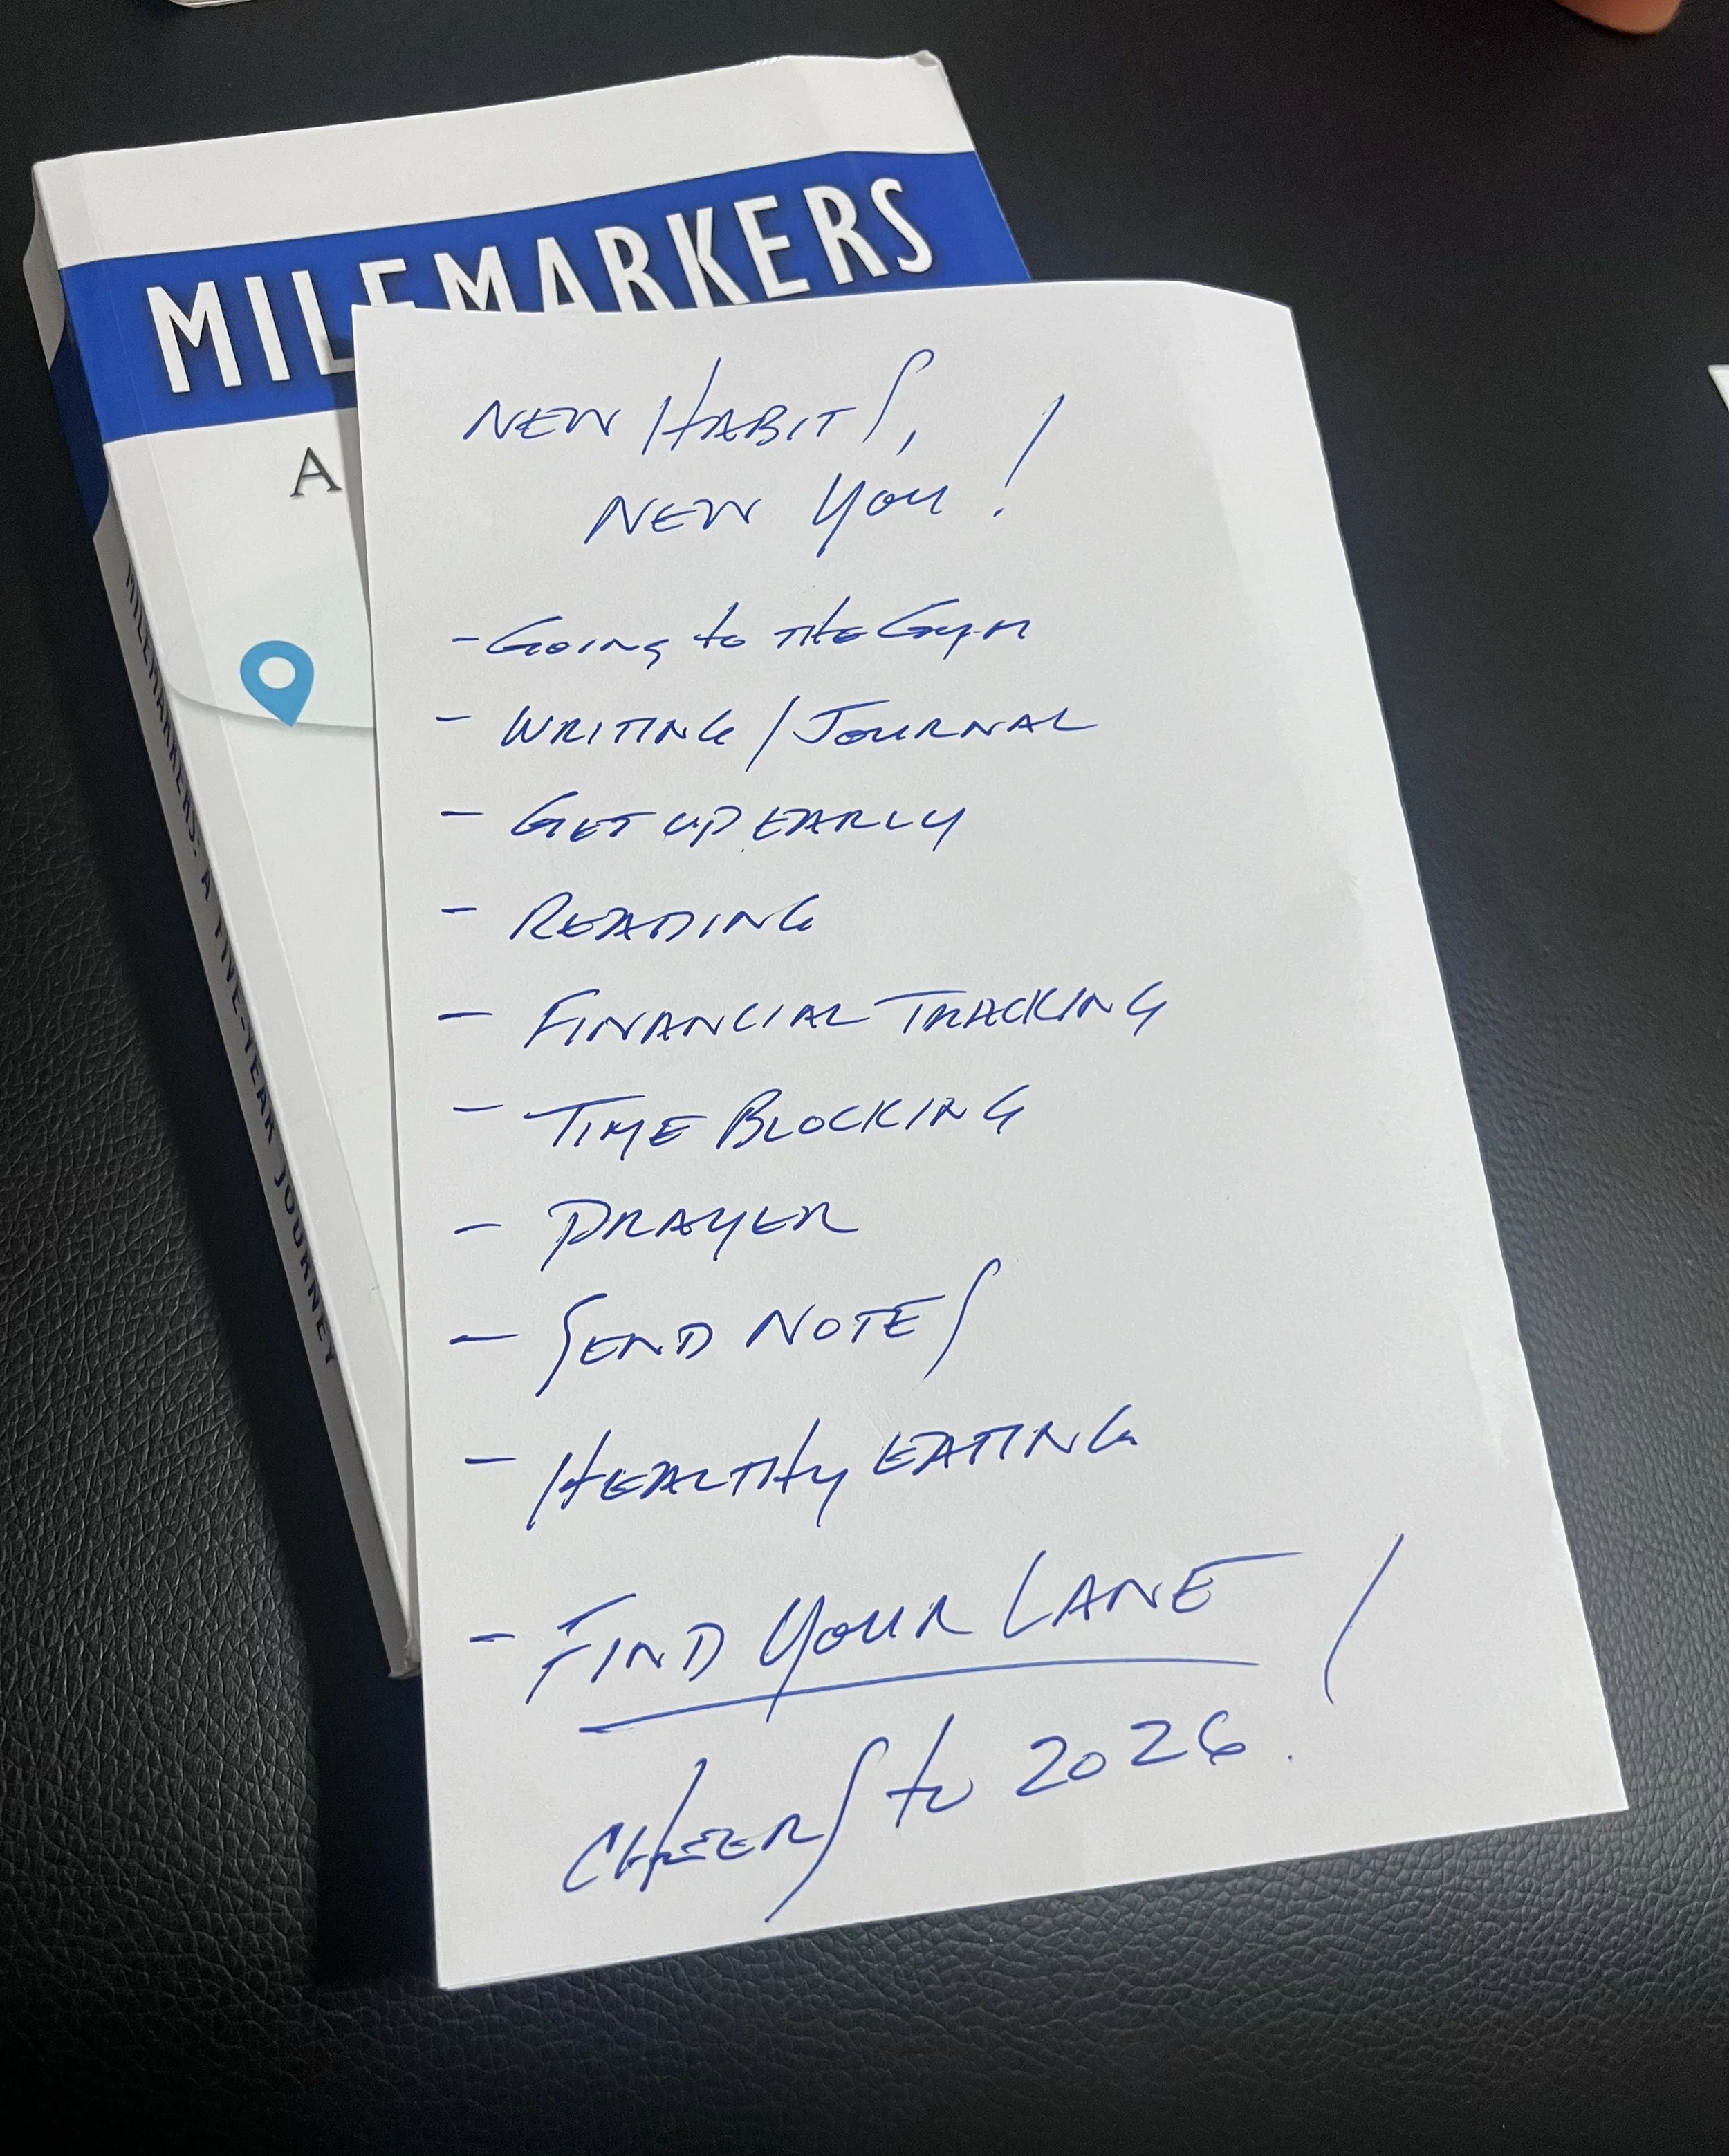 MILEMARKERS
A
MILEMARKERS: A FIVE-YEAR JOURNEY
NEW HABITS,
NEW YOU!
- GOING to THE GYM
- WRITING / JOURNAL
- GET UP EARLY
- READING
- FINANCIAL TRACKING
- TIME BLOCKING
- PRAYER
- SEND NOTES
- HEALTHY EATING
- FIND YOUR LANE
CHEERS to 2026!